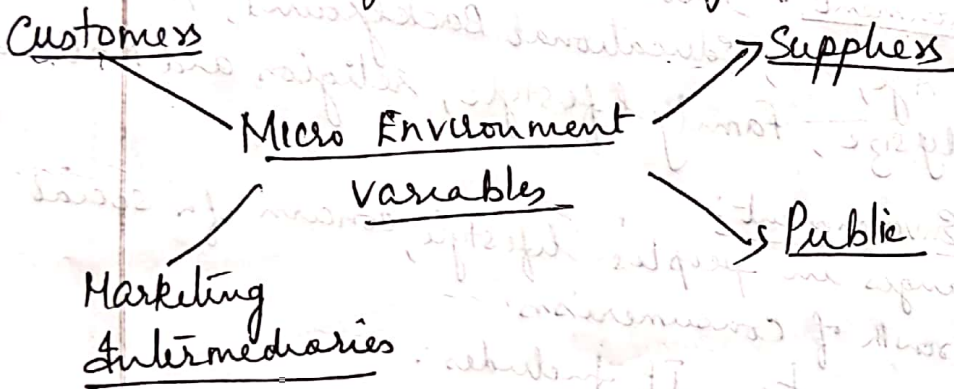 Customers
Suppliers
Micro Environment
Variables
Public
Marketing
Intermediaries